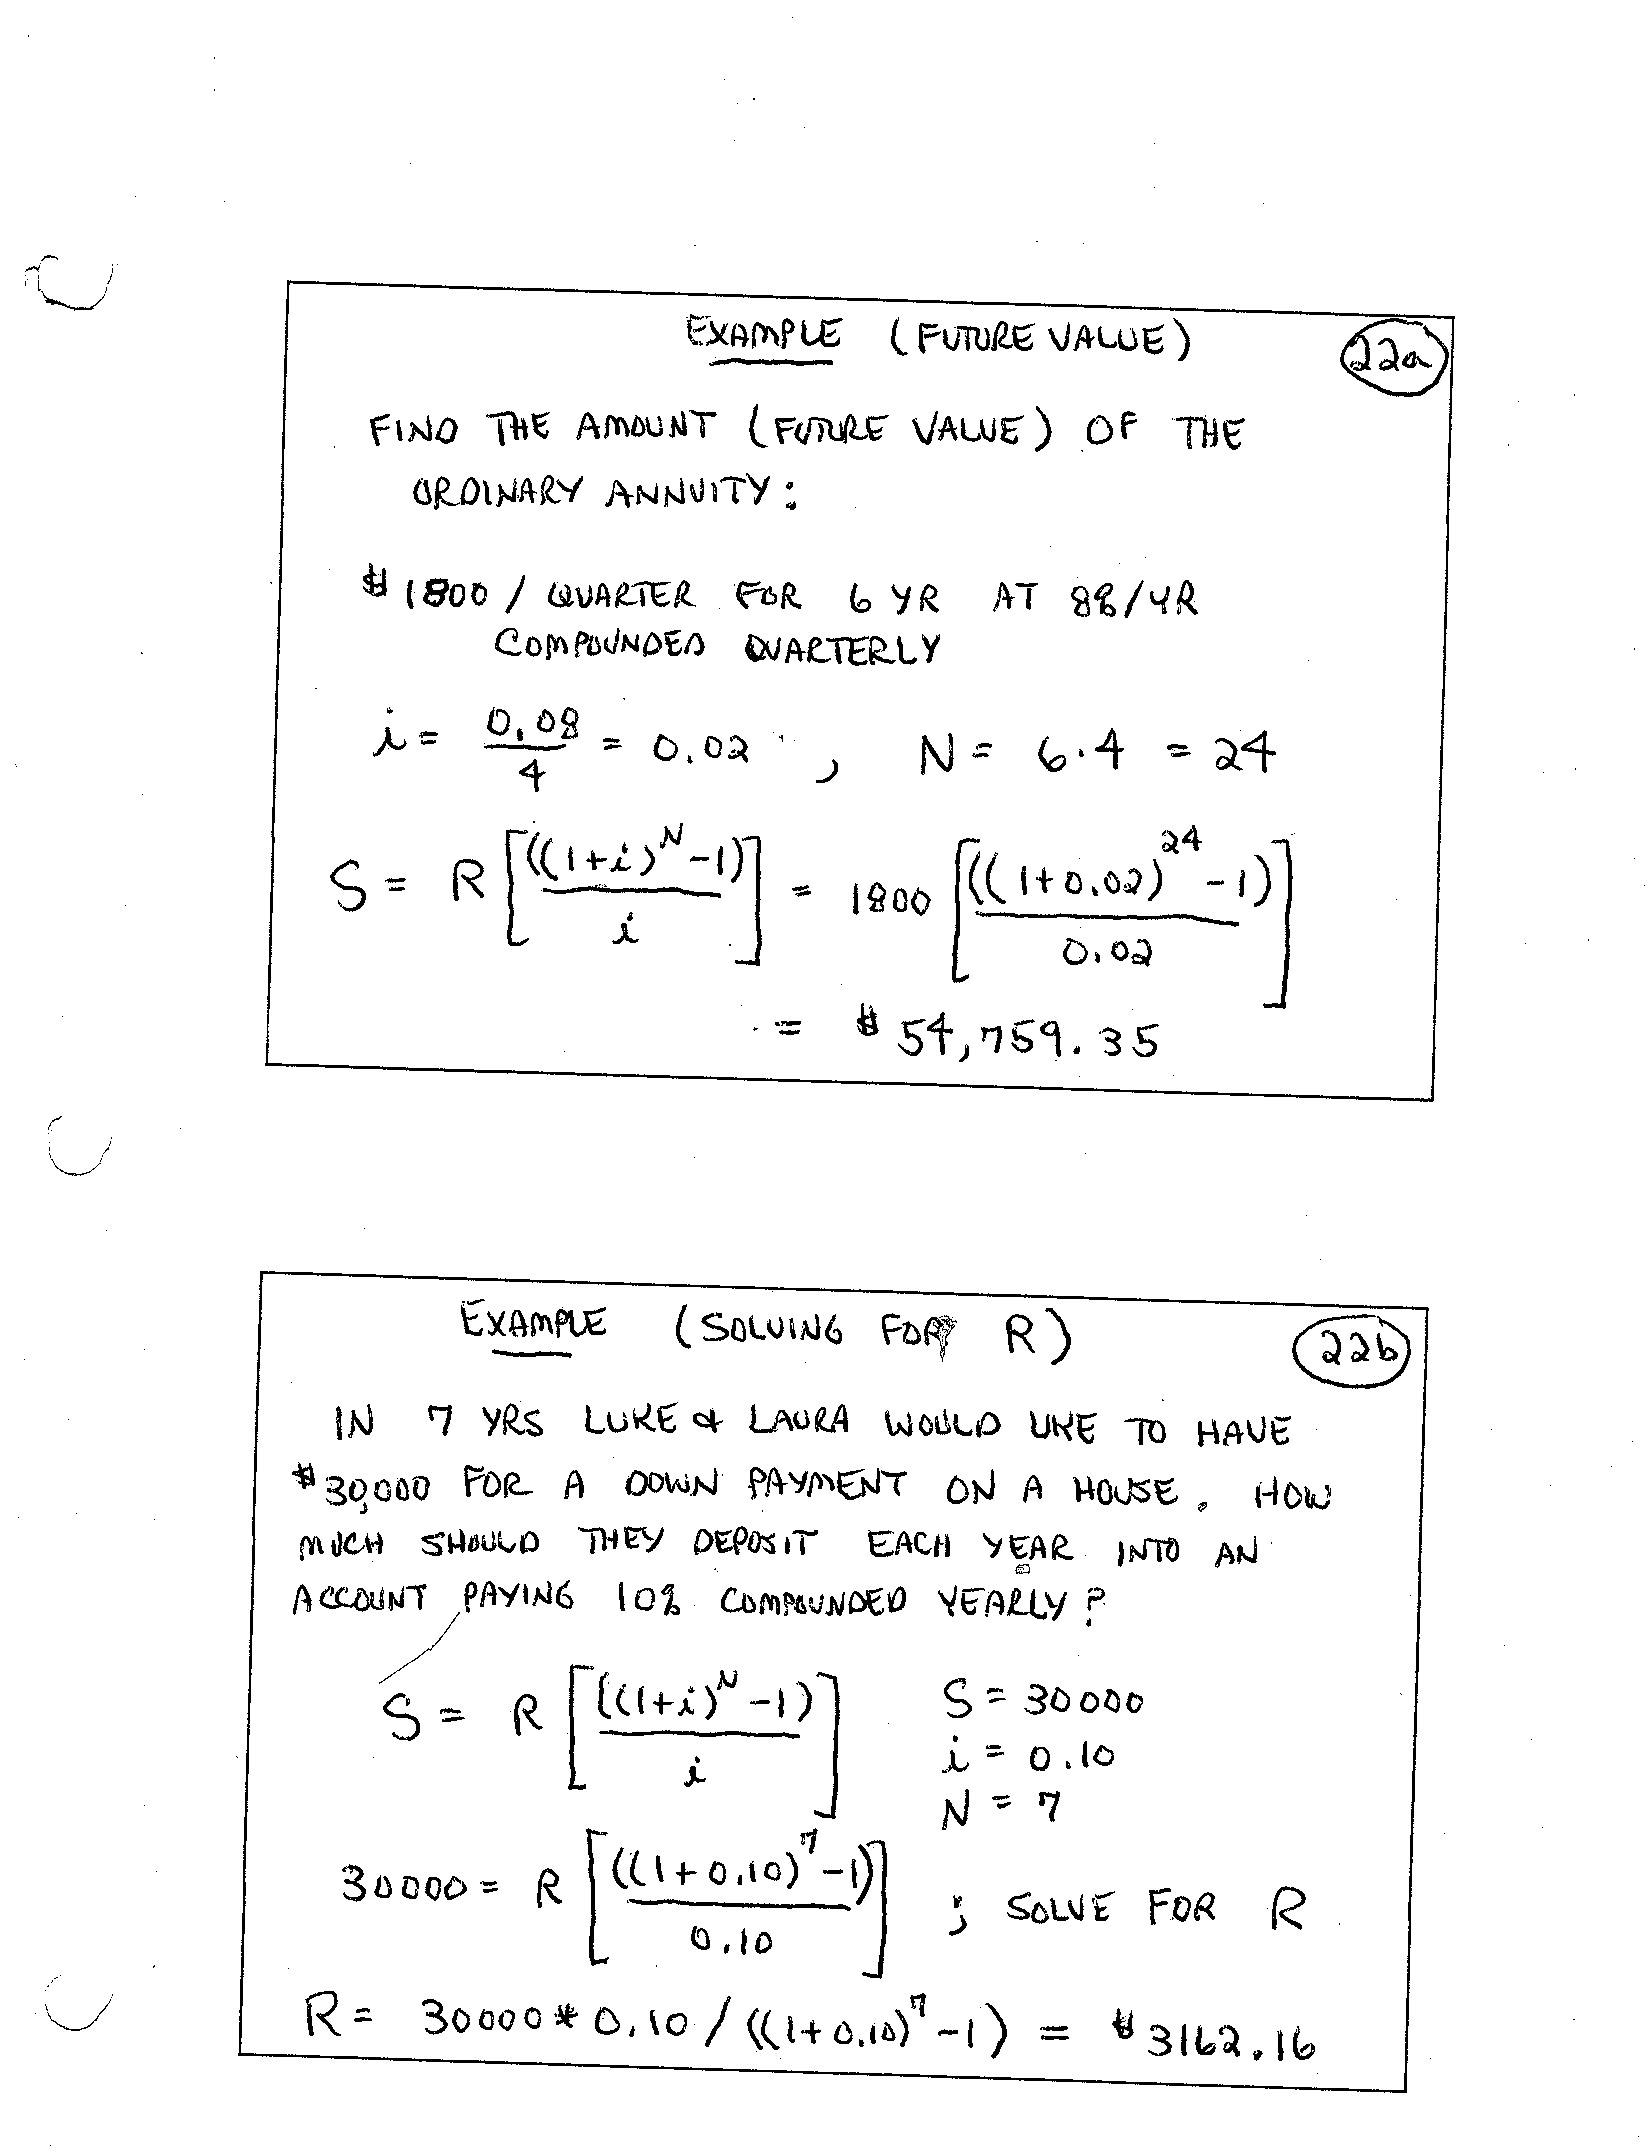 EXAMPLE (FUTURE VALUE)
22a
FIND THE AMOUNT (FUTURE VALUE) OF THE
ORDINARY ANNUITY:
$1800 / QUARTER FOR 6 YR AT 8%/YR
COMPOUNDED QUARTERLY
i = 0.08/4 = 0.02 , N = 6·4 = 24
S = R [((1+i)^N -1)/i] = 1800 [((1+0.02)^24 -1)/0.02]
= $54,759.35
EXAMPLE (SOLVING FOR R)
22b
IN 7 YRS LUKE & LAURA WOULD LIKE TO HAVE
$30,000 FOR A DOWN PAYMENT ON A HOUSE. HOW
MUCH SHOULD THEY DEPOSIT EACH YEAR INTO AN
ACCOUNT PAYING 10% COMPOUNDED YEARLY?
S = R [((1+i)^N -1)/i] S = 30000
i = 0.10
N = 7
30000 = R [((1+0.10)^7 -1)/0.10] ; SOLVE FOR R
R = 30000 * 0.10 / ((1+0.10)^7 -1) = $3162.16